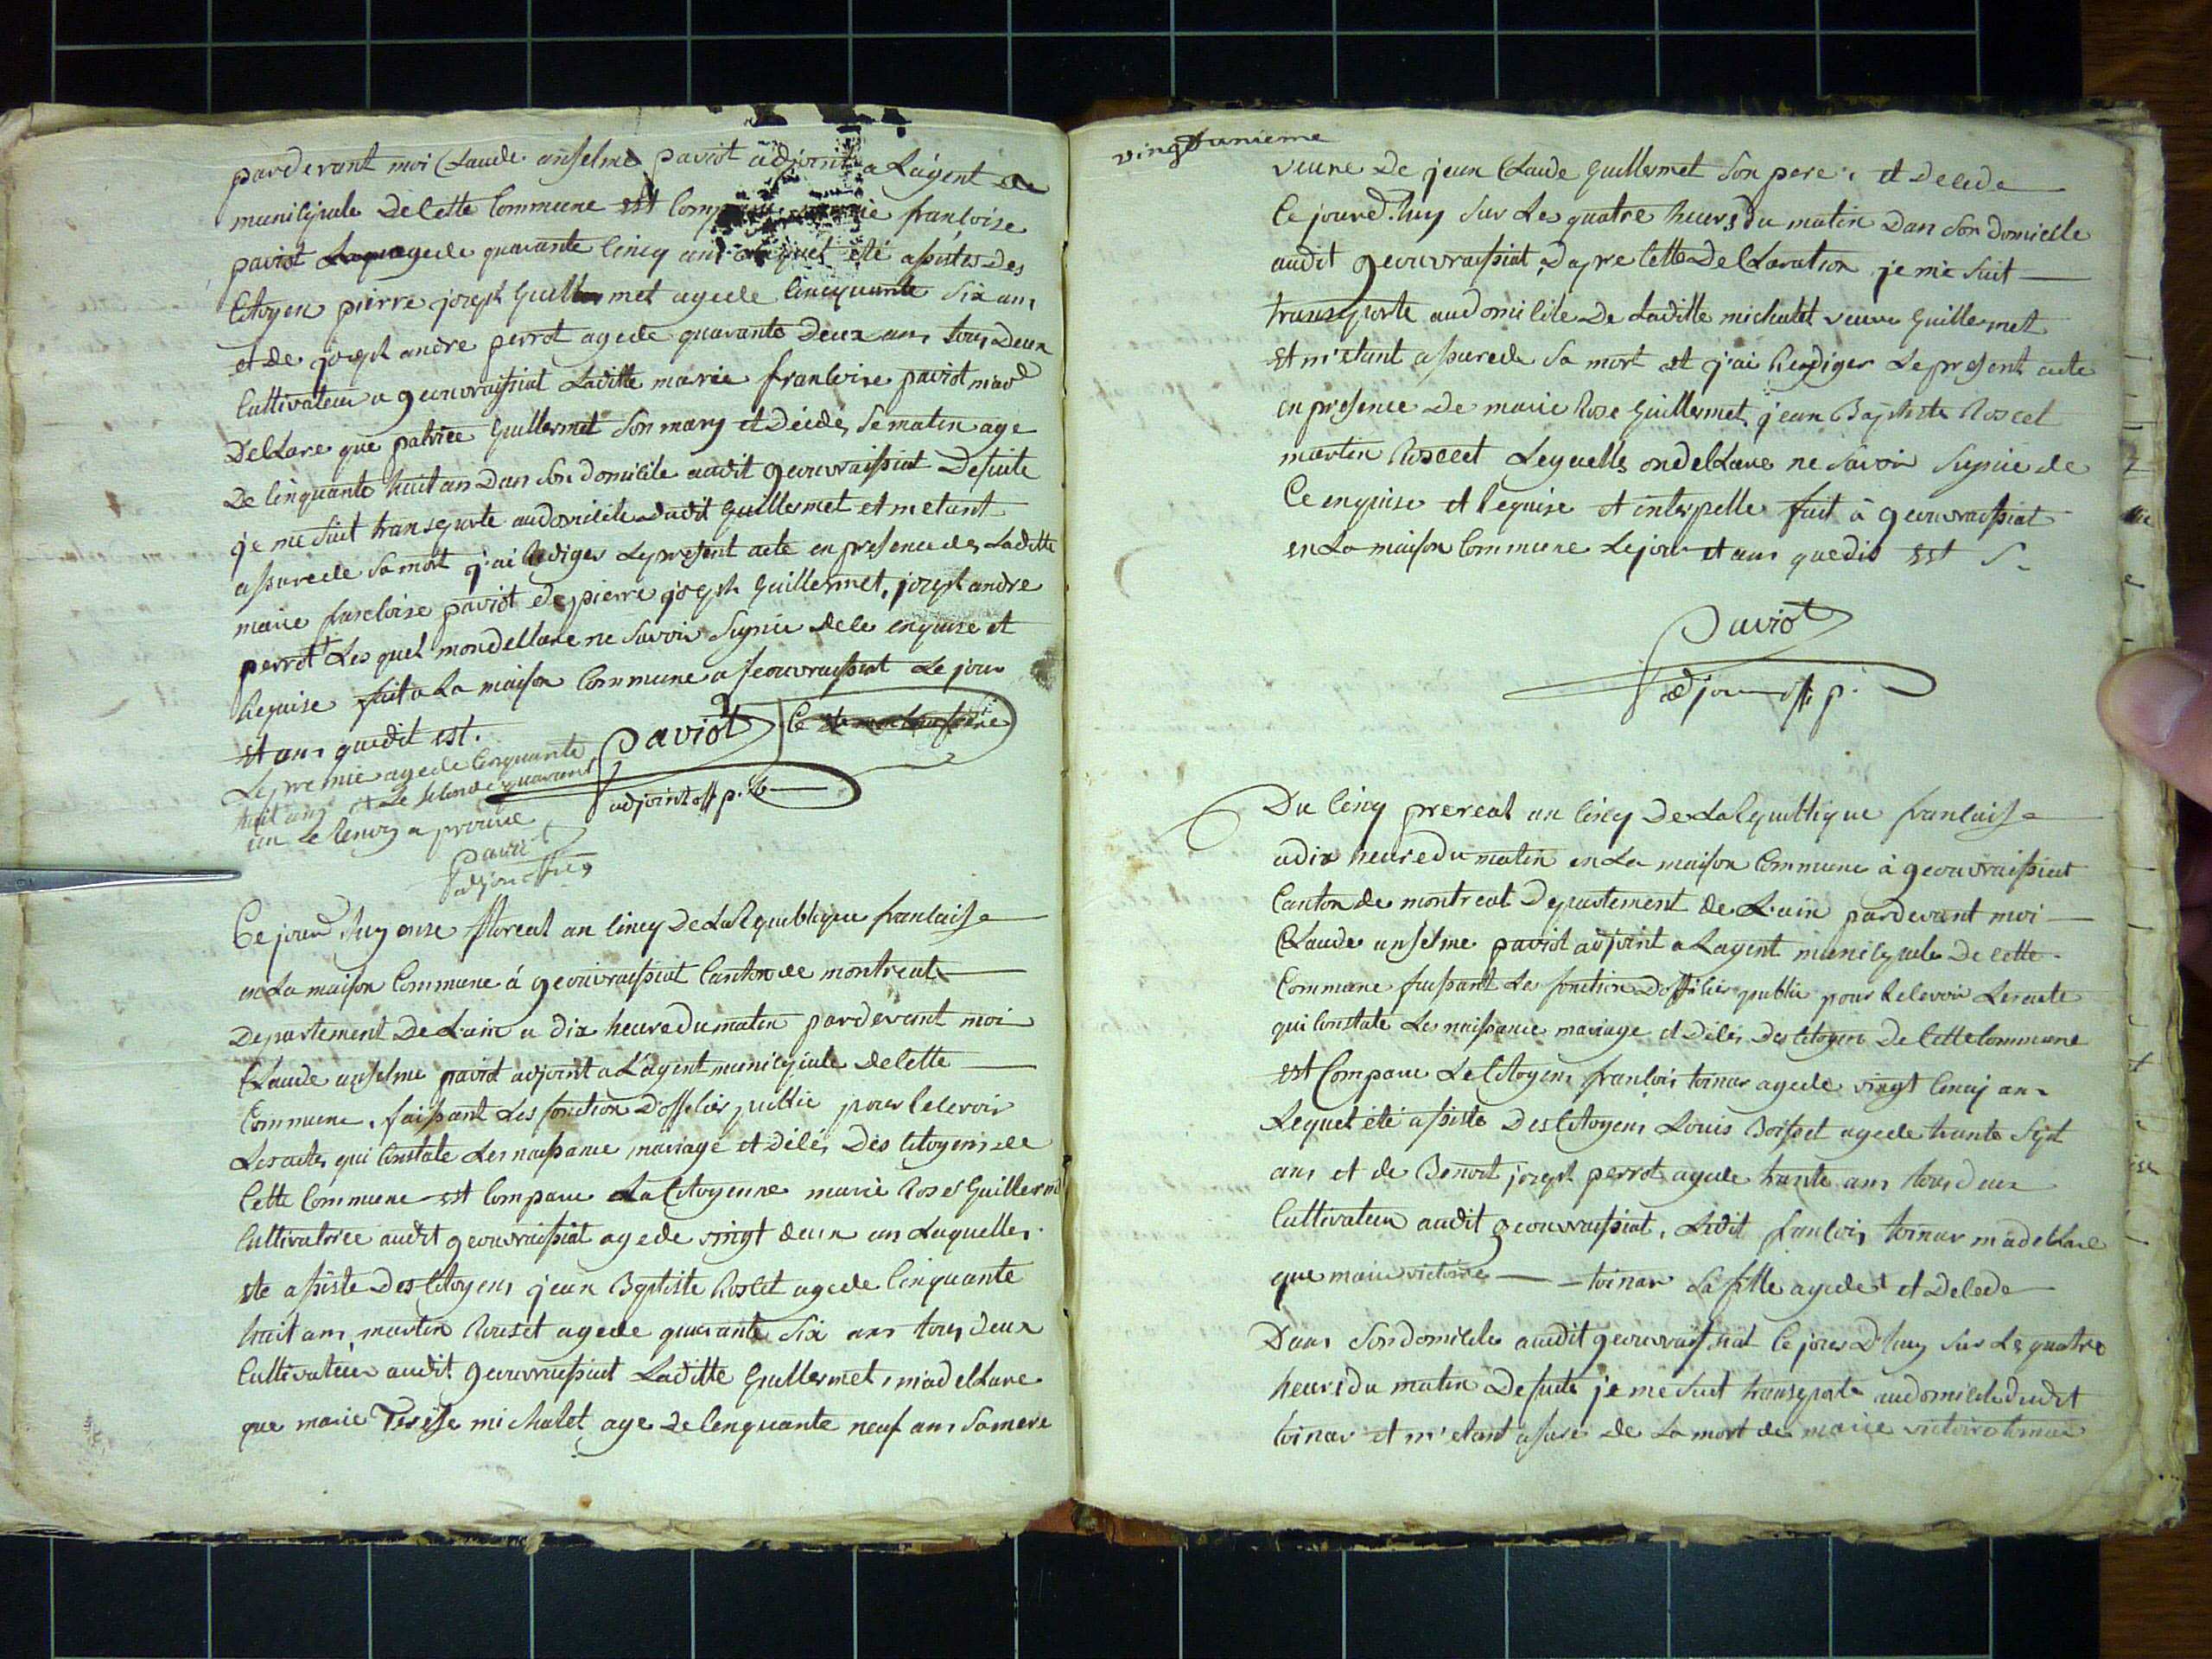 pardevant moi Claude anselme paviot adjoint a Lagent
municipale De cette Commune est françoise
paviot agede quarante cincq ans été assistes Des
Citoyen pierre joseph Guillermet agede cincquante six ans
et de joseph andre perrot agede quarante Deux ans tous Deux
Cultivateur a geouvraissiat Laditte marie francoise paviot mad
Declare que patrice Guillermet son mary et Décédé, se matin age
De cinquante huit an Dans son domicile audit geouvraissiat De suite
je me suit transporte au domicile dudit Guillermet et metant
assurede sa mort j'ai rediger Le present acte en presence de Laditte
marie francoise paviot de pierre joseph Guillermet, joseph andre
perrot Les quel mon declare ne savoir signie de ce enquise et
Requise fait a La maison Commune a geouvraissiat Le jour
et ans quedit est.
Paviot
adjoint off p.
Le premie agede cinquante
huit ans et Le second quarant
un Le renvoy a prouve
Paviot
adjoint
Ce jourd huy onse floreal an cincq De La Republique francaisse
en La maison Commune á geouvraissiat Canton de montreal
Departement De L'ain a dix heure du matin pardevant moi
Claude anselme paviot adjoint a L'agent municipale De cette
Commune, faissant Les fonction D'officier public pour recevoir
Les actes qui Constate Les naissance mariage et Décés Des Citoyens de
Cette Commune est Comparue La Citoyenne marie Rose Guillermet
Cultivatrice audit geouvraissiat agede vingt deux an Laquelle
ete assiste Des Citoyens jean Baptiste Roset agede Cinquante
huit ans martin Rouset agede quarante six ans tous deux
Cultivateur audit geouvraissiat Laditte Guillermet, m'adeclare
que marie Terese michalet age De cenquante neuf ans sa mere
vingt unieme
veuve De jean Claude Guillermet son pere, et Decede
Ce jourd'huy sur Les quatre heures du matin Dan son domicille
audit geouvraissiat, Dapre cette Declaration je me suit
transporte au domicile De Laditte michalet veuve Guillermet
et m'etant assurede sa mort et j'ai Rediger Le present acte
en presence De marie Rose Guillermet, jean Baptiste Roscet
martin Roscet Lequelle on declare ne savoir signie de
Ce enquise et Requise et interpelle fait à geouvraissiat
en La maison Commune Le jour et ans quedit est
Paviot
adjoin off p.
Du Cincq prereal an cincq De La Republique francaisse
a dix heure du matin en La maison Commune à geouvraissiat
Canton de montreal Departement de L'ain pardevant moi
Claude anselme paviot adjoint a Lagent municipale De cette
Commune faissant Les fonction D'officier public pour Recevoir Les acte
qui Constate Les naissance mariage et Décés Des Citoyens De Cette Commune
est Comparu Le Citoyens francois toinar agede vingt cincq ans
Lequel été assiste Des Citoyens Louis Boisset agede trante sept
ans et de Benoit joseph perrot agede trante ans tous deux
Cultivateur audit geouvraissiat, Ledit francois toinar m'adeclare
que marie victoire toinar sa fille agede et Decede
Dans son domicile audit geouvraissiat Ce jour D'huy sur Le quatre
heures du matin De suite je me suit transporte au domicile dudit
toinar et m'etant assuré de La mort de marie victoire toinar